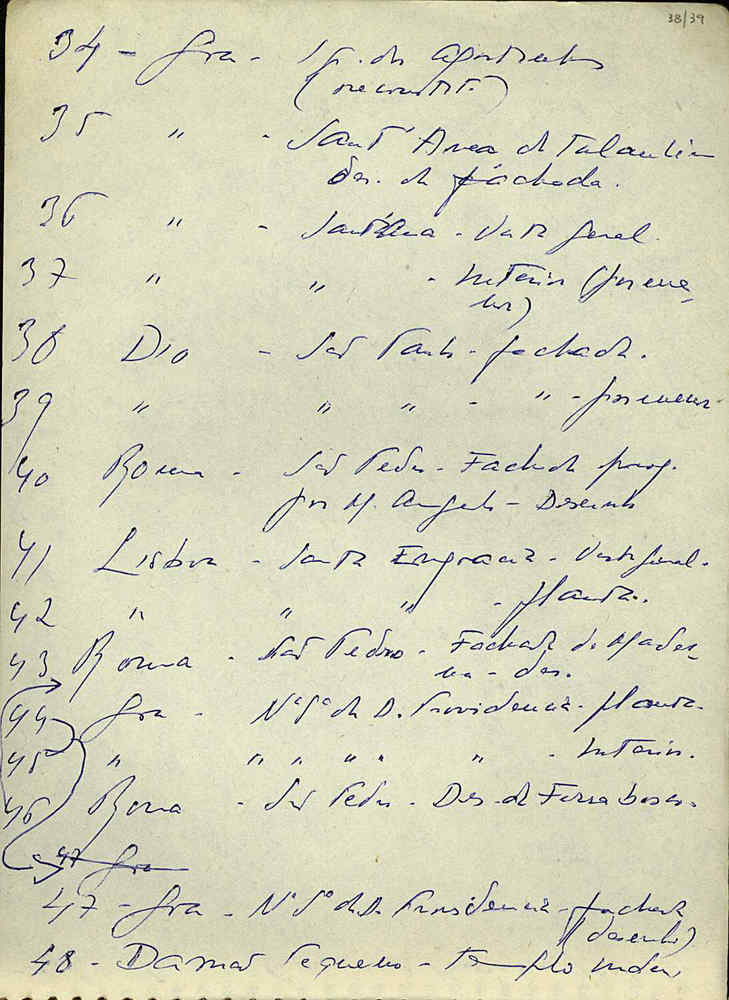 38/39
34 - Goa - Ig. do Agostinhos
(reconstit.)
35 " - Sant'Ana de Talaulim
Des. da fachada.
36 " - Sant'Ana - Vista geral.
37 " " - Interior (pormenor)
38 Dio - São Paulo - fachada.
39 " " " - " - pormenor
40 Roma - São Pedro - Fachada proj.
por M. Angelo - Desenho
41 Lisboa - Santa Engracia - Vista geral.
42 " " " - planta.
43 Roma - São Pedro - Fachada de Maderna - des.
44 Goa - Nª Sª da D. Providencia - planta.
45 " " " " " " - Interior.
46 Roma - São Pedro - Des. de Ferrabosco.
47 Goa
47 - Goa - Nª Sª da D. Providencia - fachada
(desenho)
48 - Damão Pequeno - Templo indu